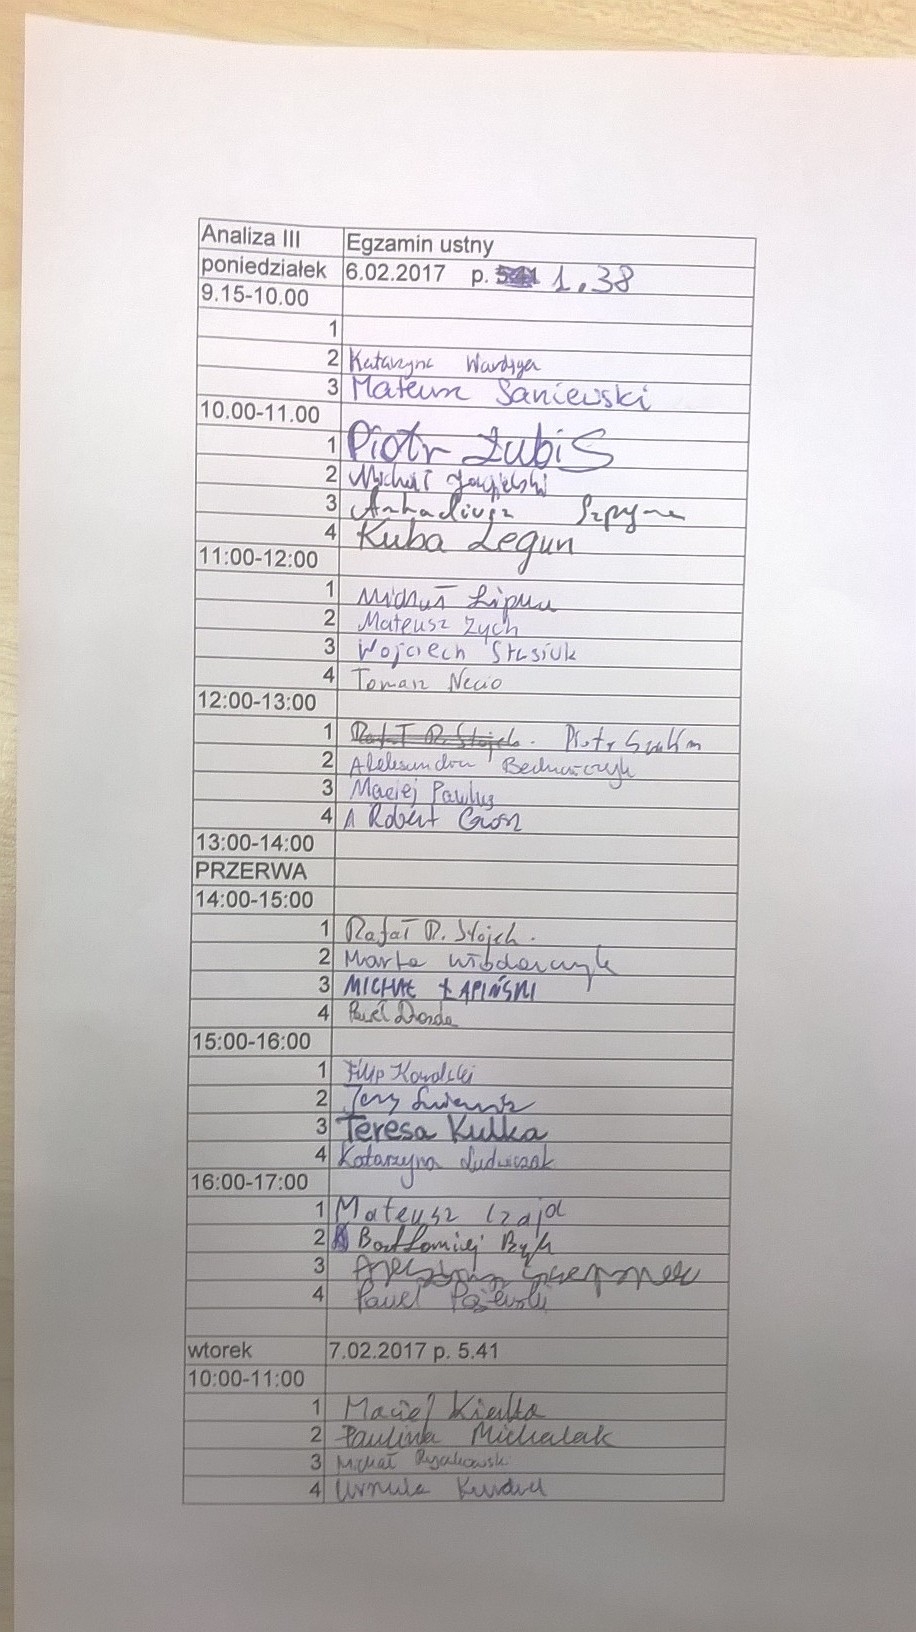 Analiza III Egzamin ustny
poniedziałek 6.02.2017 p. 1.38
9.15-10.00
1
2 Katarzyna Wardyga
3 Mateusz Saniewski
10.00-11.00
1 Piotr Żubis
2 Michał Jagielski
3 Arkadiusz
4 Kuba Legun
11:00-12:00
1 Michał
2 Mateusz Zych
3 Wojciech Stasiuk
4 Tomasz Necio
12:00-13:00
1 Rafał P. Stojch. Piotr
2 Aleksandra Bednarczyk
3 Maciej Pawlus
4 Robert
13:00-14:00
PRZERWA
14:00-15:00
1 Rafał P. Stojch.
2 Marta Włodarczyk
3 MICHAŁ ŁAPIŃSKI
4 Paweł Drozda
15:00-16:00
1 Filip Kowalski
2 Jerzy
3 Teresa Kulka
4 Katarzyna Ludwiczak
16:00-17:00
1 Mateusz Czajd
2 Bartłomiej Bąk
3
4 Paweł
wtorek 7.02.2017 p. 5.41
10:00-11:00
1 Maciej
2 Paulina Michalak
3 Michał
4 Urszula